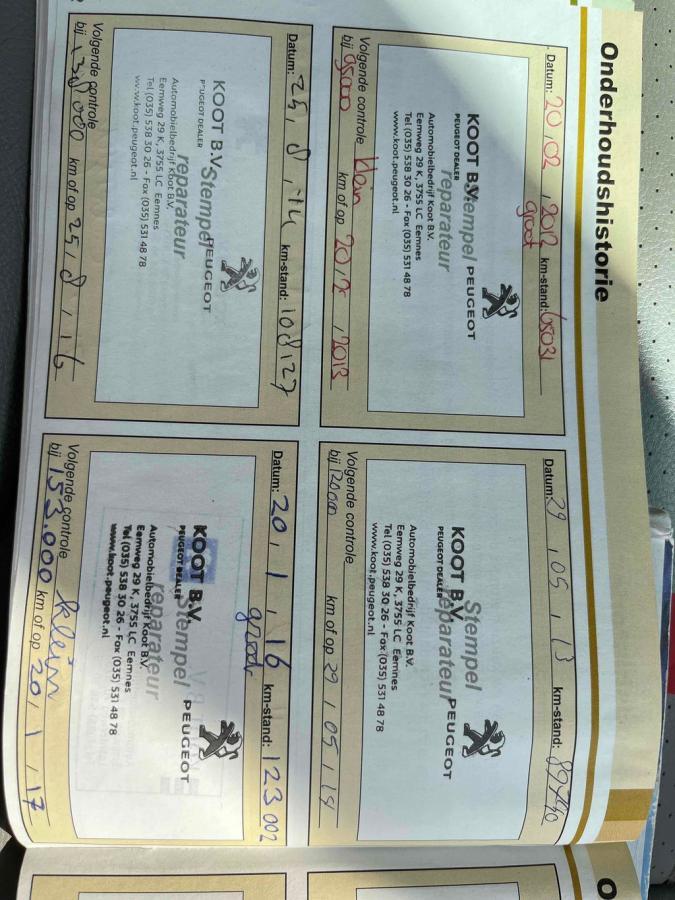 Onderhoudshistorie
Datum: 20 / 02 / 2012 km-stand: 65031
groot
Stempel
reparateur
KOOT B.V. PEUGEOT
PEUGEOT DEALER
Automobielbedrijf Koot B.V.
Eemweg 29 K, 3755 LC Eemnes
Tel (035) 538 30 26 - Fax (035) 531 48 78
www.koot.peugeot.nl
Volgende controle klein
bij 95000 km of op 20 / 2 / 2013
Datum: 29 , 05 , 13 km-stand:
Stempel
reparateur
KOOT B.V. PEUGEOT
PEUGEOT DEALER
Automobielbedrijf Koot B.V.
Eemweg 29 K, 3755 LC Eemnes
Tel (035) 538 30 26 - Fax (035) 531 48 78
www.koot.peugeot.nl
Volgende controle
bij km of op 29 / 05 / 14
Datum: 25 , 8 , 14 km-stand: 108127
Stempel
reparateur
KOOT B.V. PEUGEOT
PEUGEOT DEALER
Automobielbedrijf Koot B.V.
Eemweg 29 K, 3755 LC Eemnes
Tel (035) 538 30 26 - Fax (035) 531 48 78
www.koot.peugeot.nl
Volgende controle
bij 138,000 km of op 25 , 8 , 16
Datum: 20 , 1 , 16 km-stand: 123 002
groot
Stempel
reparateur
KOOT B.V. PEUGEOT
PEUGEOT DEALER
Automobielbedrijf Koot B.V.
Eemweg 29 K, 3755 LC Eemnes
Tel (035) 538 30 26 - Fax (035) 531 48 78
www.koot.peugeot.nl
Volgende controle klein
bij 153.000 km of op 20 , 1 , 17
O